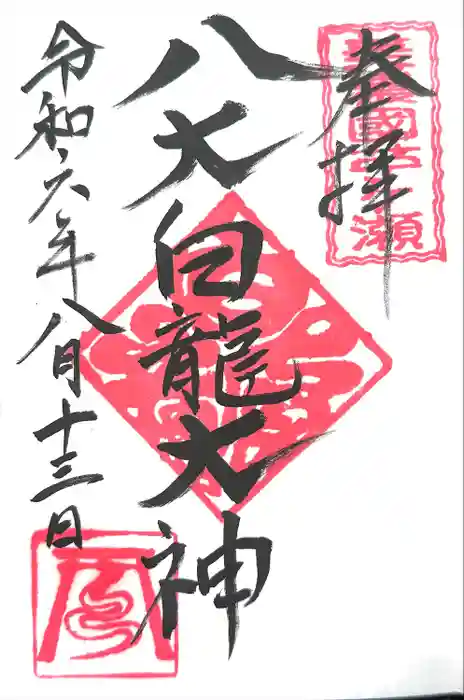 奉拝
八大白龍大神
令和六年八月十三日